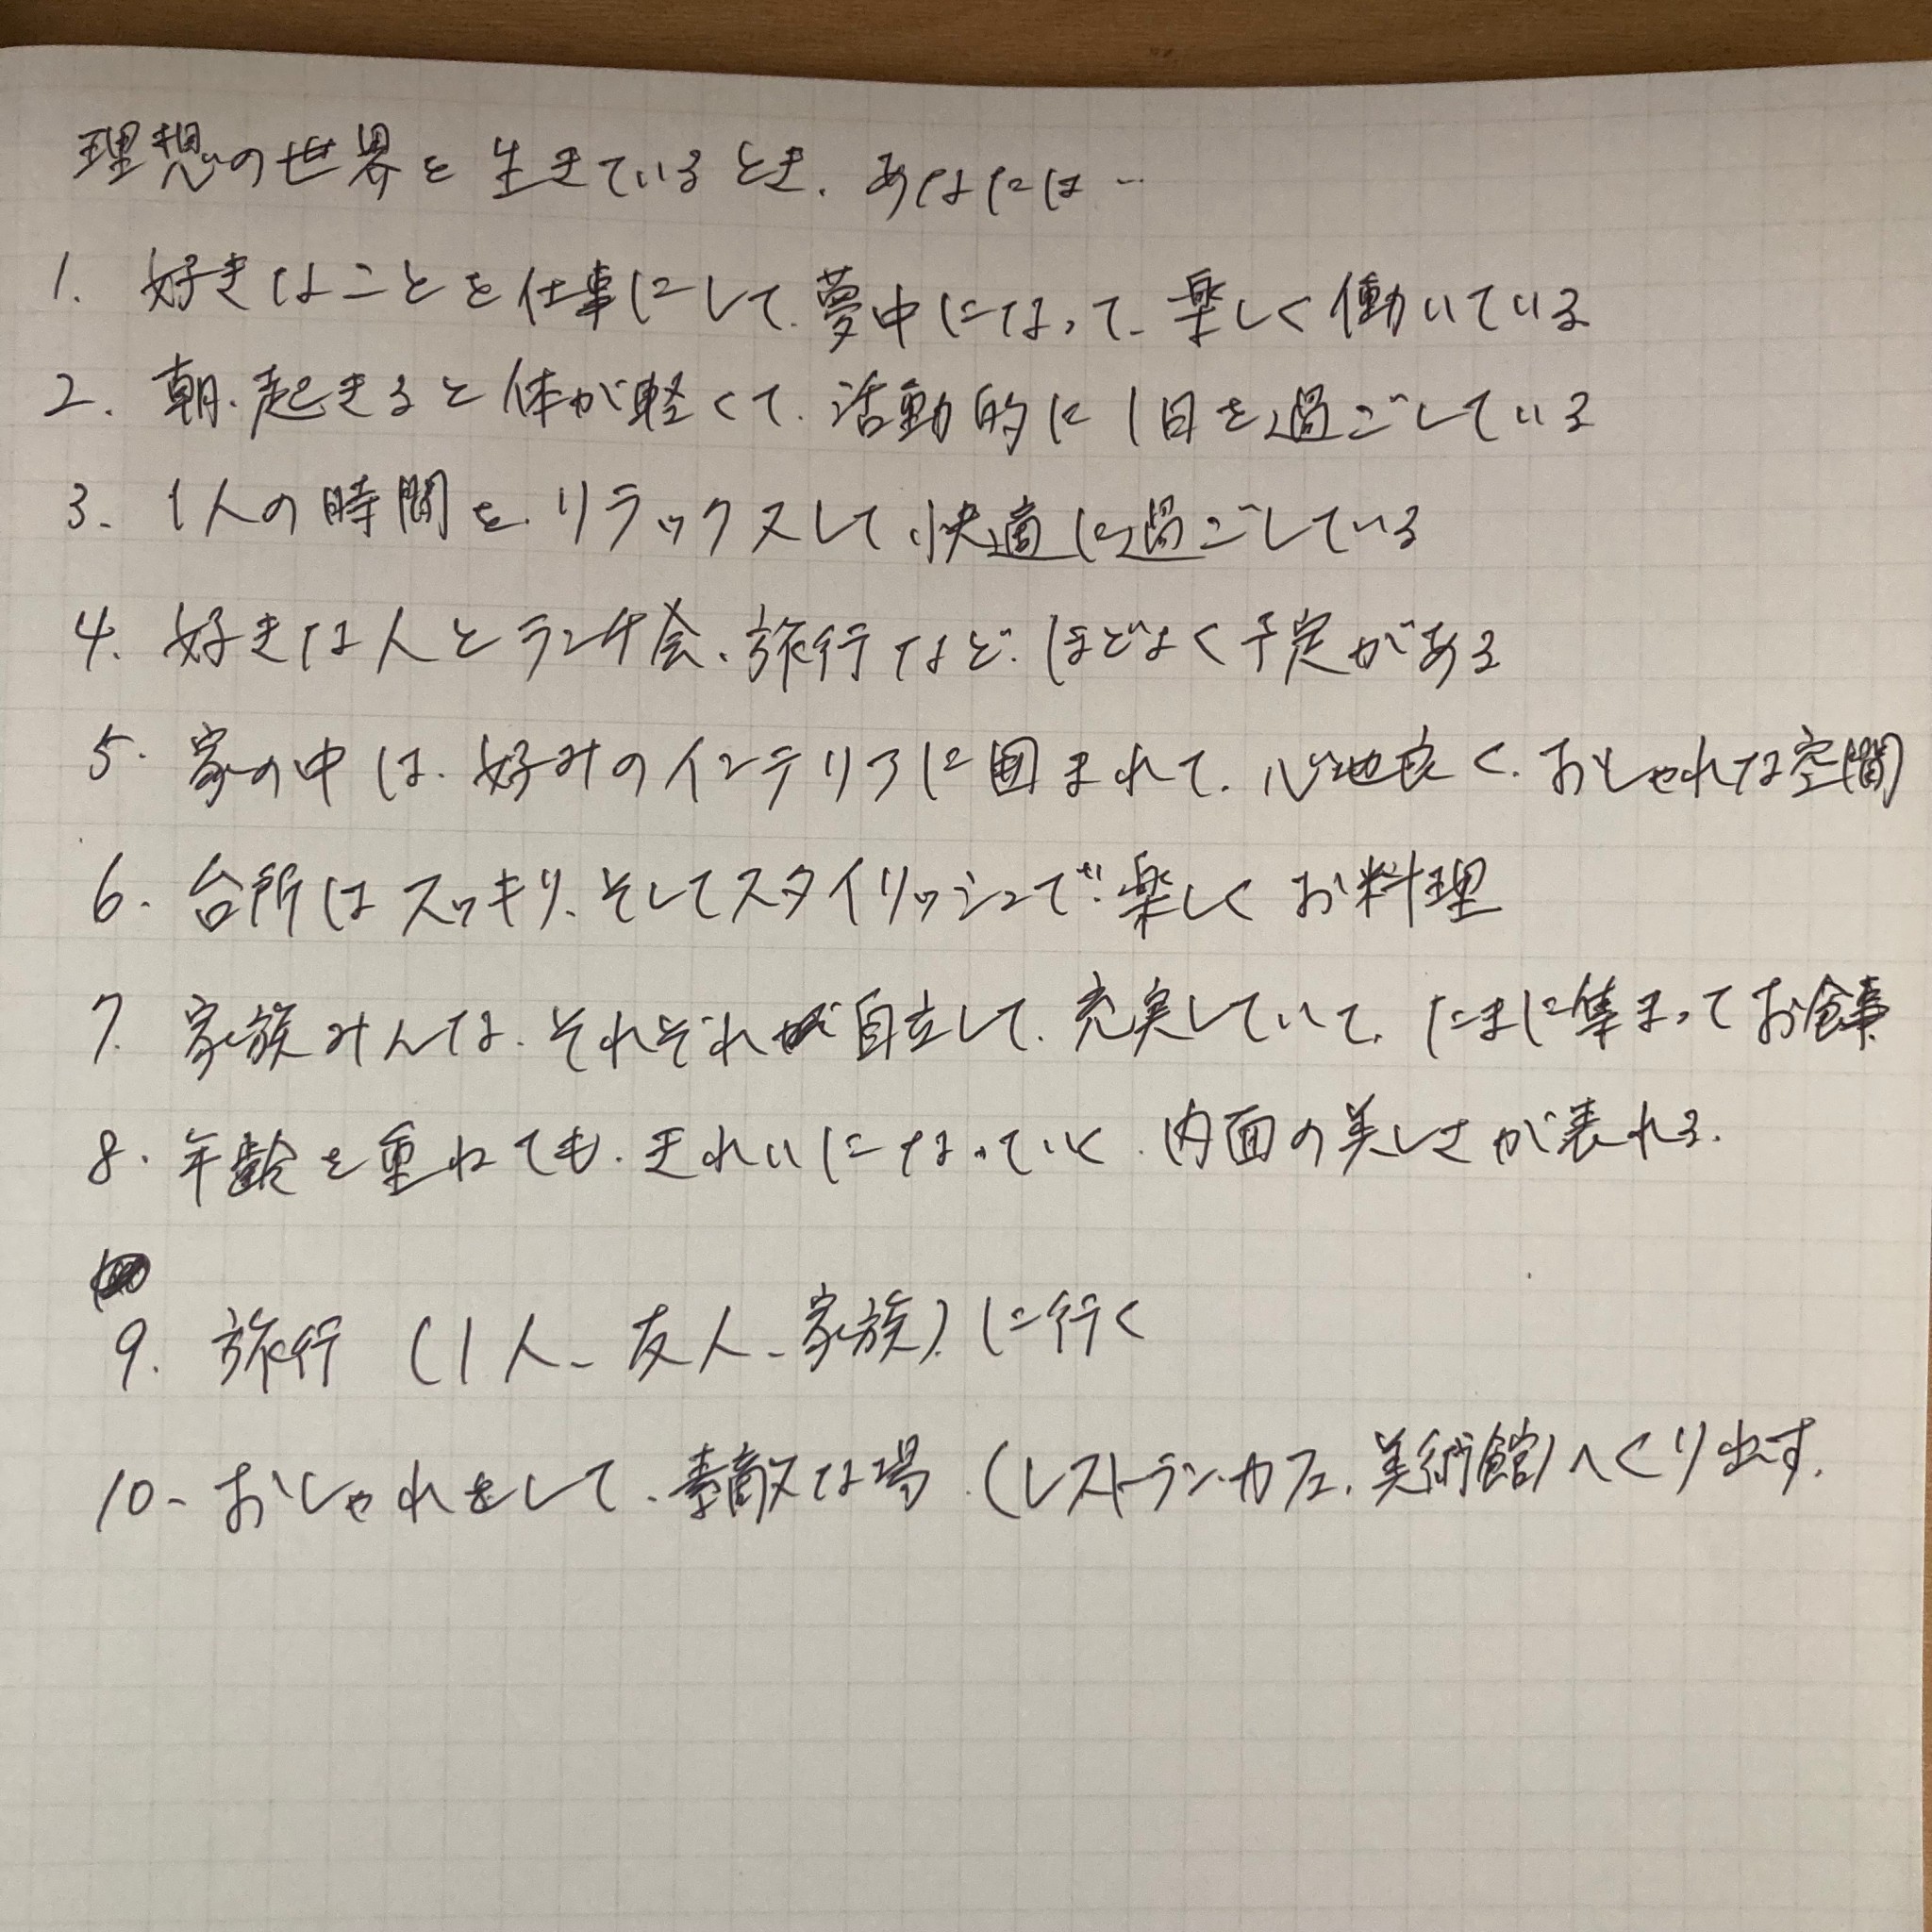 理想の世界を生きているとき、あなたは…
1. 好きなことを仕事にして、夢中になって、楽しく働いている
2. 朝、起きると体が軽くて、活動的に1日を過ごしている
3. 1人の時間を、リラックスして、快適に過ごしている
4. 好きな人とランチ会、旅行など、ほどよく予定がある
5. 家の中は、好みのインテリアに囲まれて、心地良く、おしゃれな空間
6. 台所はスッキリ、そしてスタイリッシュで、楽しくお料理
7. 家族みんな、それぞれが自立して、充実していて、たまに集まってお食事
8. 年齢を重ねても、きれいになっていく、内面の美しさが表れる。
9. 旅行 (1人、友人、家族) に行く
10. おしゃれをして、素敵な場 (レストラン・カフェ、美術館) へくり出す。